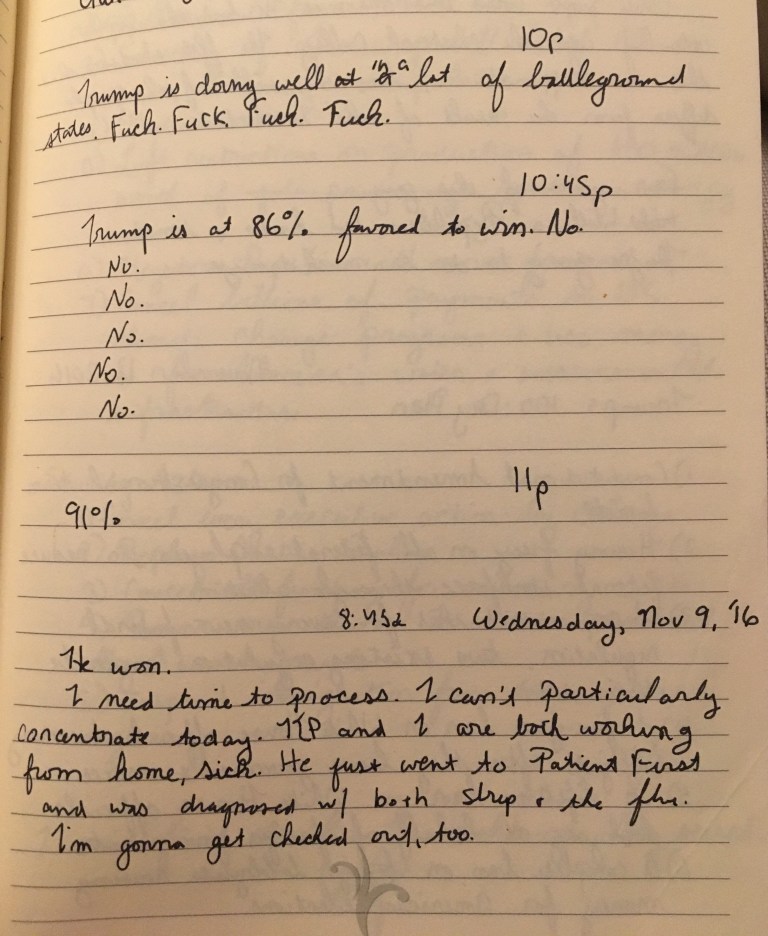 10p
Trump is doing well at in a lot of battleground
states. Fuck. Fuck. Fuck. Fuck.
10:45p
Trump is at 86% favored to win. No.
No.
No.
No.
No.
No.
11p
91%
8:45a Wednesday, Nov 9, '16
He won.
I need time to process. I can't particularly
concentrate today. and I are both working
from home, sick. He just went to Patient First
and was diagnosed w/ both strep & the flu.
I'm gonna get checked out, too.